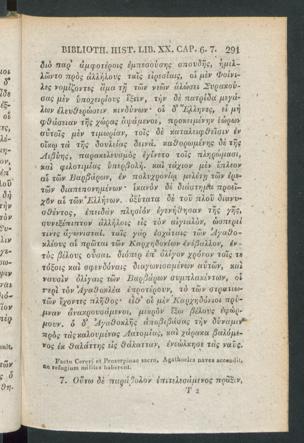 BIBLIOTH. HIST. LIB. XX. CAP. 6. 7. 291
διὸ παρ' ἀμφοτέροις ἐμπεσούσης σπουδῆς, ἡμιλ-
λῶντο πρὸς ἀλλήλους ταῖς εἰρεσίαις, οἱ μὲν Φοίνι-
κες νομίζοντες ἅμα τῇ τῶν νεῶν ἁλώσει Συρακού-
σας μὲν ὑποχειρίους ἕξειν, τὴν δὲ πατρίδα μεγά-
λων ἐλευθερώσειν κινδύνων· οἱ δ' Ἕλληνες, εἰ μὴ
φθάσειαν τῆς χώρας ἁψάμενοι, προκειμένην ἑώρων
αὑτοῖς μὲν τιμωρίαν, τοῖς δὲ καταλειφθεῖσιν ἐν
οἴκῳ τὰ τῆς δουλείας δεινά. καθορωμένης δὲ τῆς
Λιβύης, παρακελευσμὸς ἐγίνετο τοῖς πληρώμασι,
καὶ φιλοτιμίας ὑπερβολή. καὶ τάχιον μὲν ἔπλεον
αἱ τῶν Βαρβάρων, ἐν πολυχρονίῳ μελέτῃ τῶν ἐρε-
τῶν διαπεπονημένων· ἱκανὸν δὲ διάστημα προεῖ-
χον αἱ τῶν Ἑλλήνων. ὀξύτατα δὲ τοῦ πλοῦ διανυ-
σθέντος, ἐπειδὴ πλησίον ἐγενήθησαν τῆς γῆς,
συνεξέπιπτον ἀλλήλοις εἰς τὸν αἰγιαλὸν, ὡσπερεί
τινες ἀγωνισταί. ταῖς γὰρ ἐσχάταις τῶν Ἀγαθο-
κλέους αἱ πρῶται τῶν Καρχηδονίων ἐνέβαλλον, ἐν-
τὸς βέλους οὖσαι. διόπερ ἐπ' ὀλίγον χρόνον τοῖς τε
τόξοις καὶ σφενδόναις διαγωνισαμένων αὐτῶν, καὶ
ναυσὶν ὀλίγαις τῶν Βαρβάρων συμπλακέντων, οἱ
περὶ τὸν Ἀγαθοκλέα ἐπροτέρουν, τὸ τῶν στρατιω-
τῶν ἔχοντες πλῆθος· εἶθ' οἱ μὲν Καρχηδόνιοι πρύ-
μναν ἀνακρουσάμενοι, μικρὸν ἔξω βέλους ἐφώρ-
μουν. ὁ δ' Ἀγαθοκλῆς ἀποβιβάσας τὴν δύναμιν
πρὸς τὰς καλουμένας Λατομίας, καὶ χάρακα βαλόμε-
νος ἐκ θαλάττης εἰς θάλατταν, ἐνεώλκησε τὰς ναῦς.
Facto Cereri et Proserpinae sacro, Agathocles naves accendit,
ne refugium milites haberent.
7. Οὕτω δὲ παράβολον ἐπιτελεσάμενος πρᾶξιν,
T 2